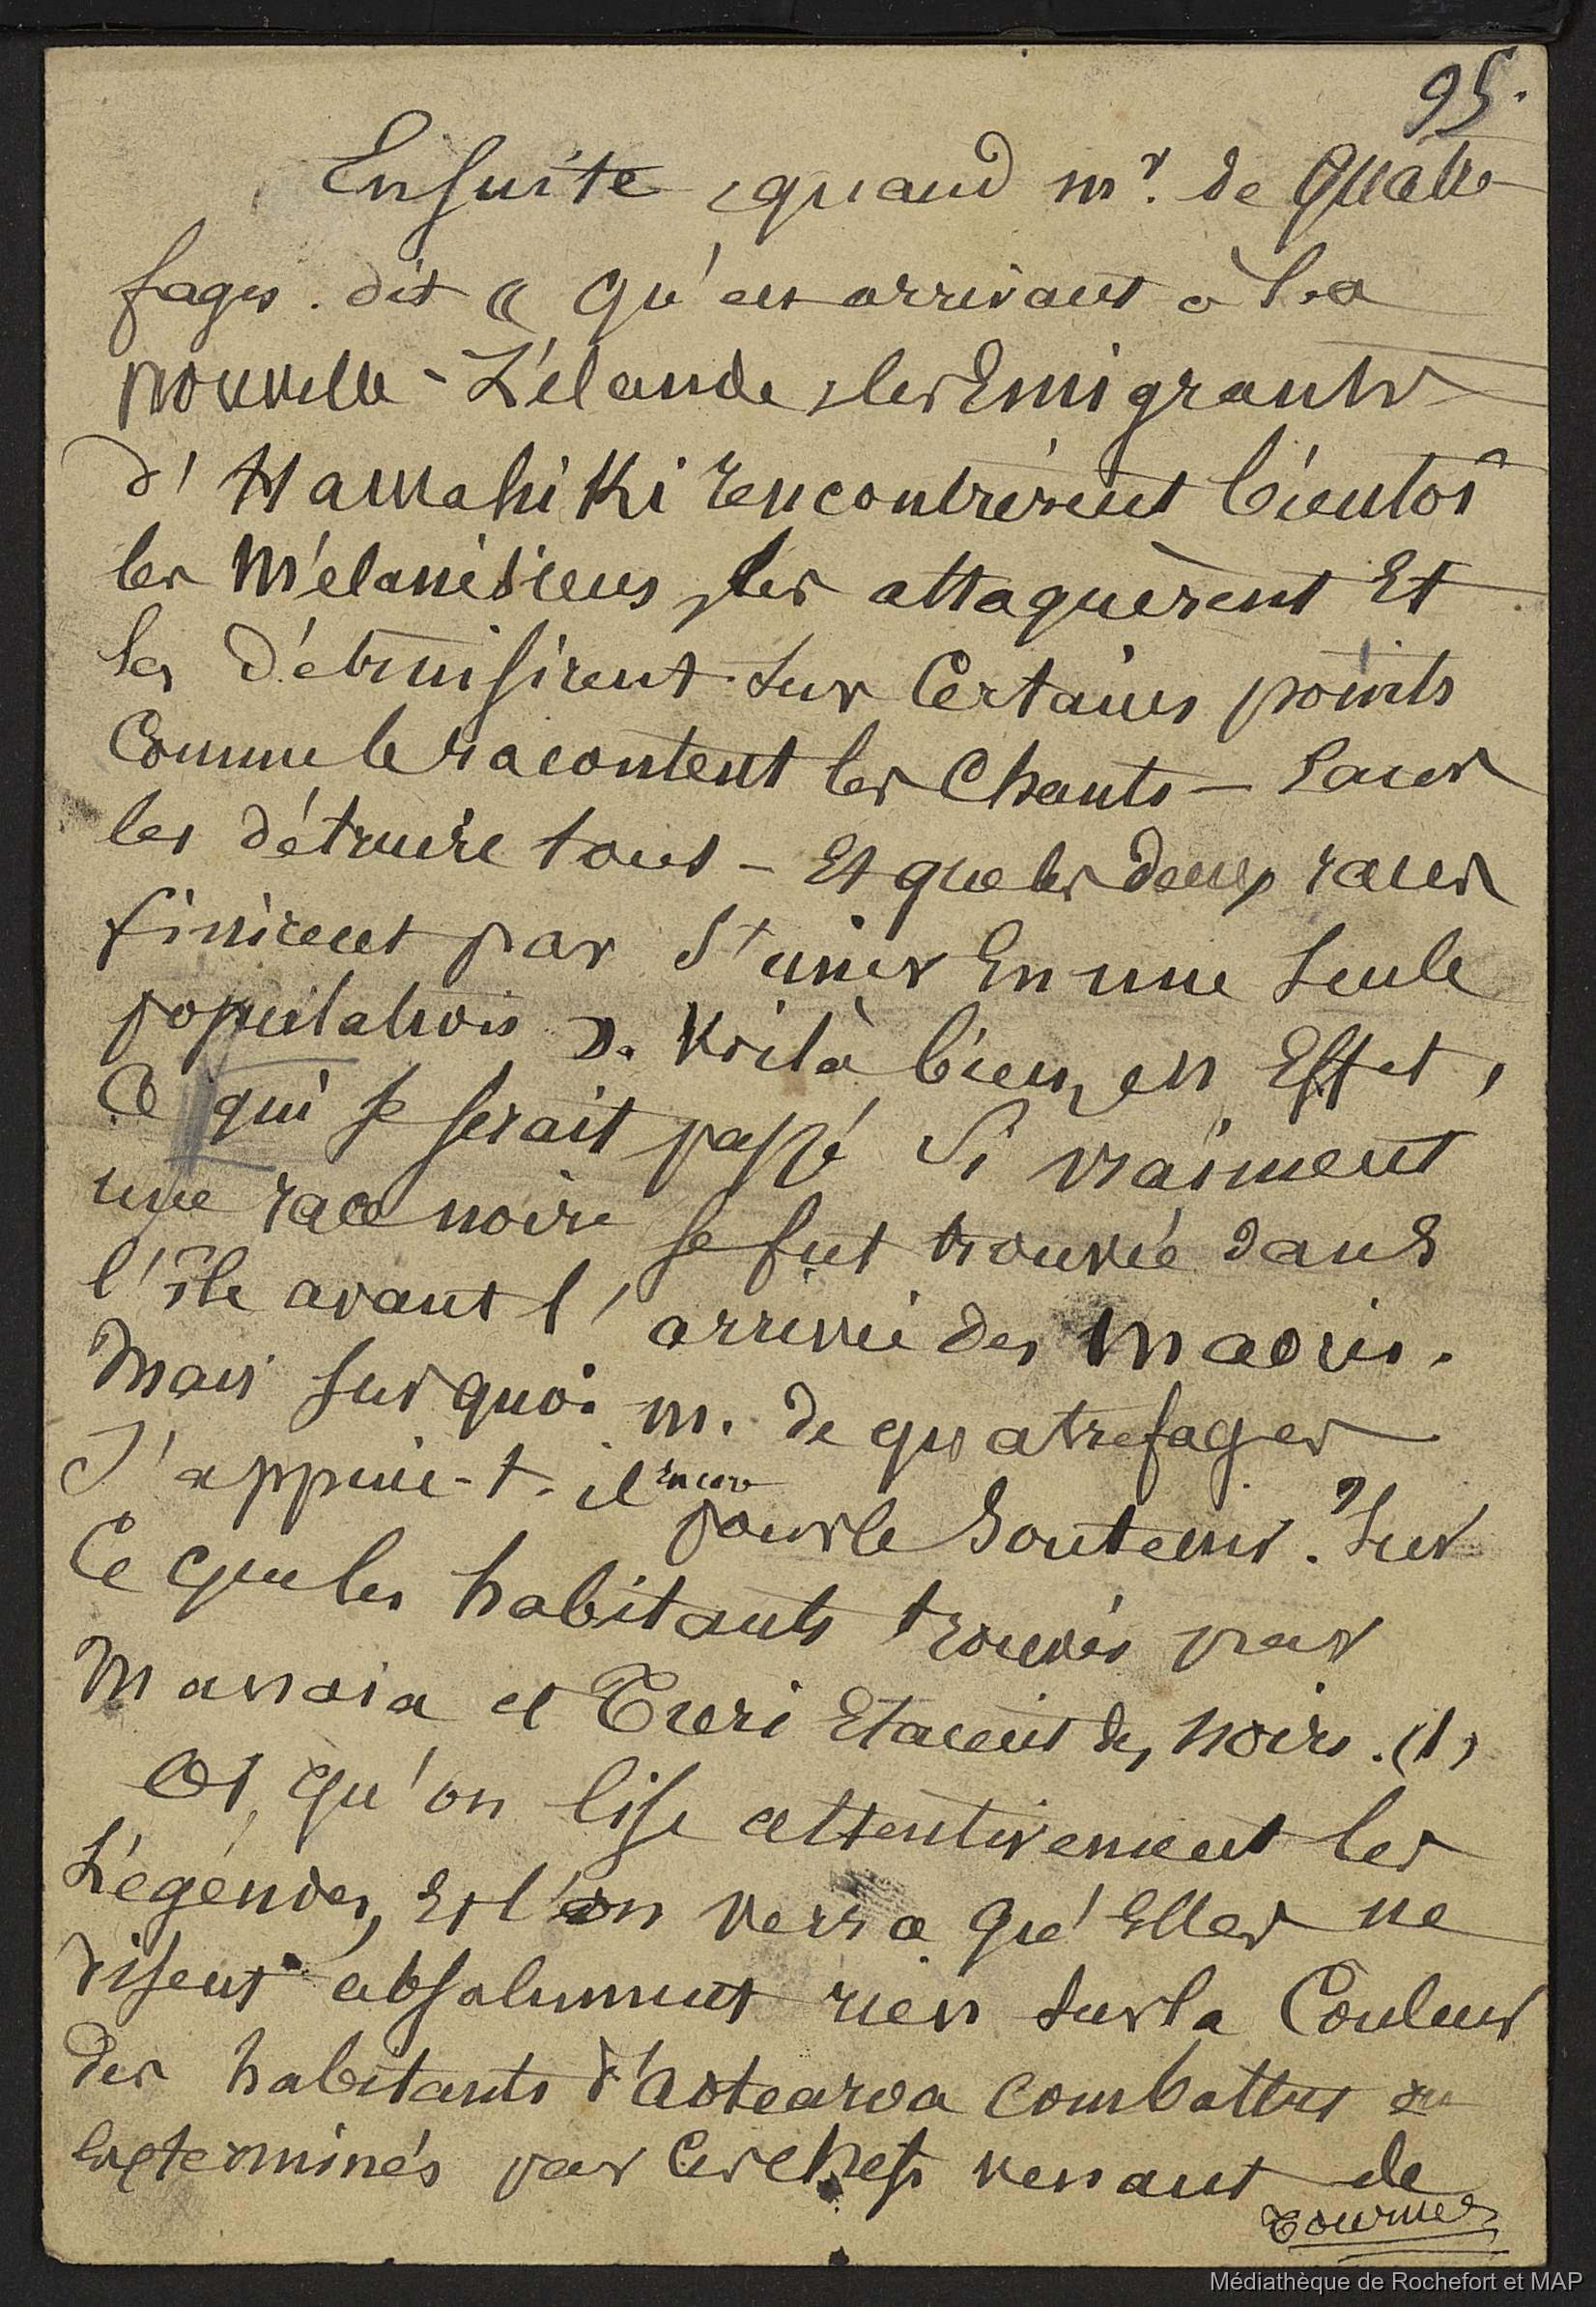 95.
Ensuite, quand Mr. de Quatre-
fages dit « qu'en arrivant à la
Nouvelle-Zélande, les Emigrants
d'Hawahiki rencontrèrent bientôt
les Mélanésiens, les attaquèrent Et
les détruisirent sur Certains points
Comme le racontent les Chants – sans
les détruire tous – Et que les deux races
finirent par s'unir En une seule
population ». Voilà bien, en Effet,
Ce qui se serait passé si vraiment
une race noire se fut trouvée dans
l'île avant l'arrivée des Maoris.
Mais sur quoi M. de quatrefages
s'appuie-t-il Encore pour le soutenir? Sur
Ce que les habitants trouvés par
Manaia et Turi Etaient des noirs. (1)
Or, qu'on lise attentivement les
Légendes, Et l'on verra qu'Elles ne
disent absolument rien sur la Couleur
des habitants d'Aotearoa combattus ou
Exterminés par les chefs venant de
Tournez
Médiathèque de Rochefort et MAP